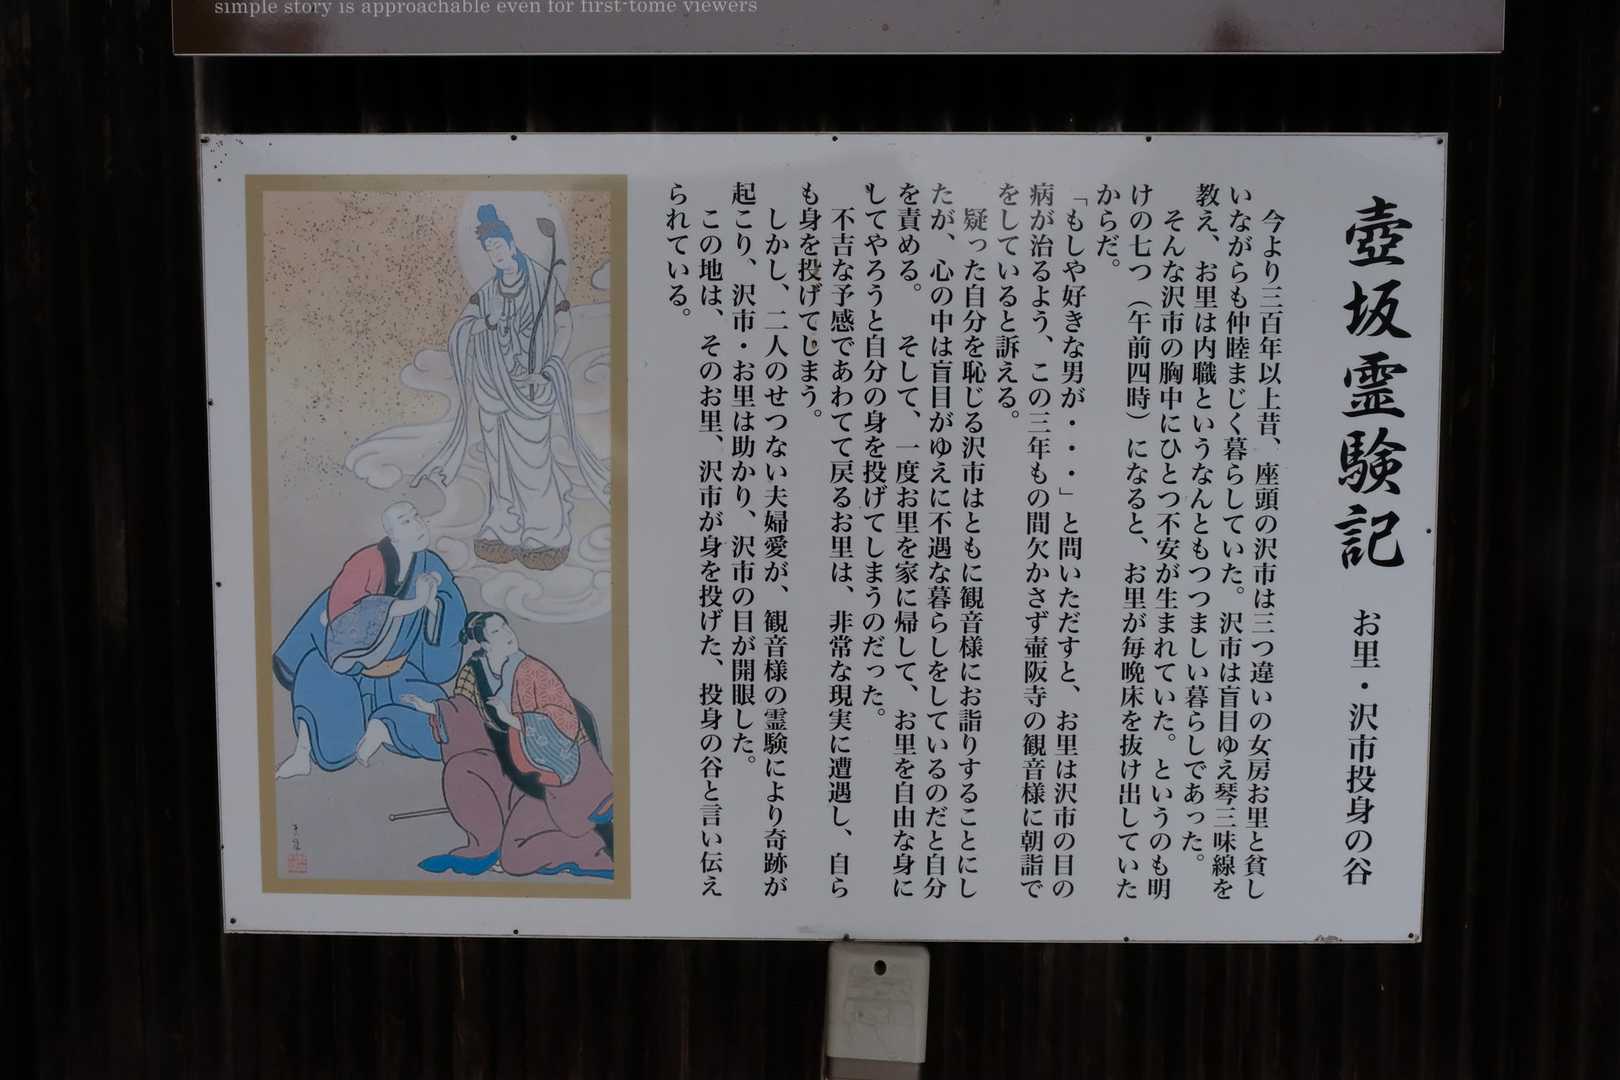 simple story is approachable even for first-tome viewers
壺坂霊験記 お里・沢市投身の谷
今より三百年以上昔、座頭の沢市は三つ違いの女房お里と貧し
いながらも仲睦まじく暮らしていた。沢市は盲目ゆえ琴三味線を
教え、お里は内職というなんともつつましい暮らしであった。
そんな沢市の胸中にひとつ不安が生まれていた。というのも明
けの七つ（午前四時）になると、お里が毎晩床を抜け出していた
からだ。
「もしや好きな男が・・・」と問いただすと、お里は沢市の目の
病が治るよう、この三年もの間欠かさず壷阪寺の観音様に朝詣で
をしていると訴える。
疑った自分を恥じる沢市はともに観音様にお詣りすることにし
たが、心の中は盲目がゆえに不遇な暮らしをしているのだと自分
を責める。　そして、一度お里を家に帰して、お里を自由な身に
してやろうと自分の身を投げてしまうのだった。
不吉な予感であわてて戻るお里は、非常な現実に遭遇し、自ら
も身を投げてしまう。
しかし、二人のせつない夫婦愛が、観音様の霊験により奇跡が
起こり、沢市・お里は助かり、沢市の目が開眼した。
この地は、そのお里、沢市が身を投げた、投身の谷と言い伝え
られている。